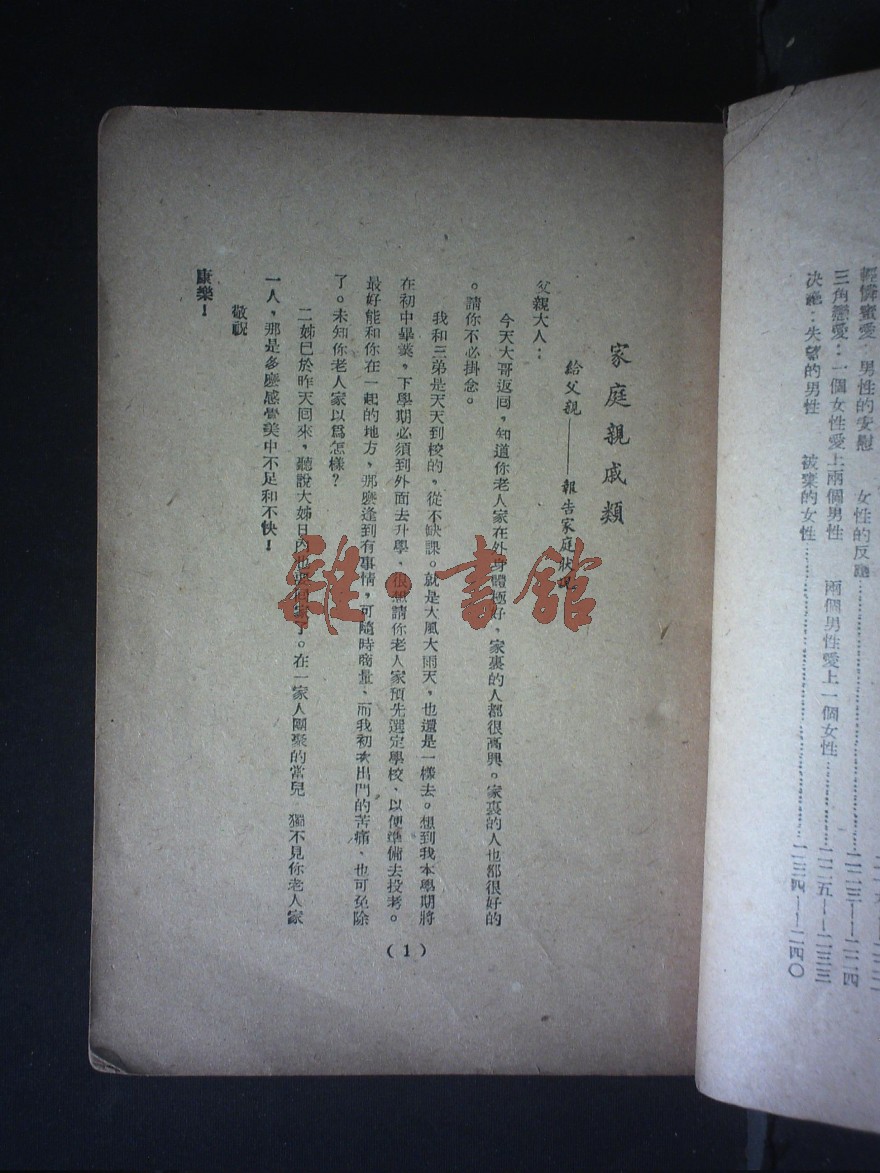 輕憐蜜愛：男性的安慰　女性的反應……二二三——二二四
三角戀愛：一個女性愛上兩個男性　兩個男性愛上一個女性……二二五——二三三
決絕：失望的男性　被棄的女性……二三四——二四〇
家庭親戚類
給父親——報告家庭狀況
父親大人：
今天大哥返回，知道你老人家在外身體極好，家裏的人都很高興。家裏的人也都很好的
。請你不必掛念。
我和三弟是天天到校的，從不缺課。就是大風大雨天，也還是一樣去。想到我本學期將
在初中畢業，下學期必須到外面去升學，很想請你老人家預先選定學校、以便準備去投考。
最好能和你在一起的地方，那麼逢到有事情，可隨時商量、而我初次出門的苦痛、也可免除
了。未知你老人家以爲怎樣？
二姊已於昨天回來，聽說大姊日內也要回家了。在一家人團聚的當兒　獨不見你老人家
一人，那是多麼感覺美中不足和不快！
敬祝
康樂！
(1)
雜·書館